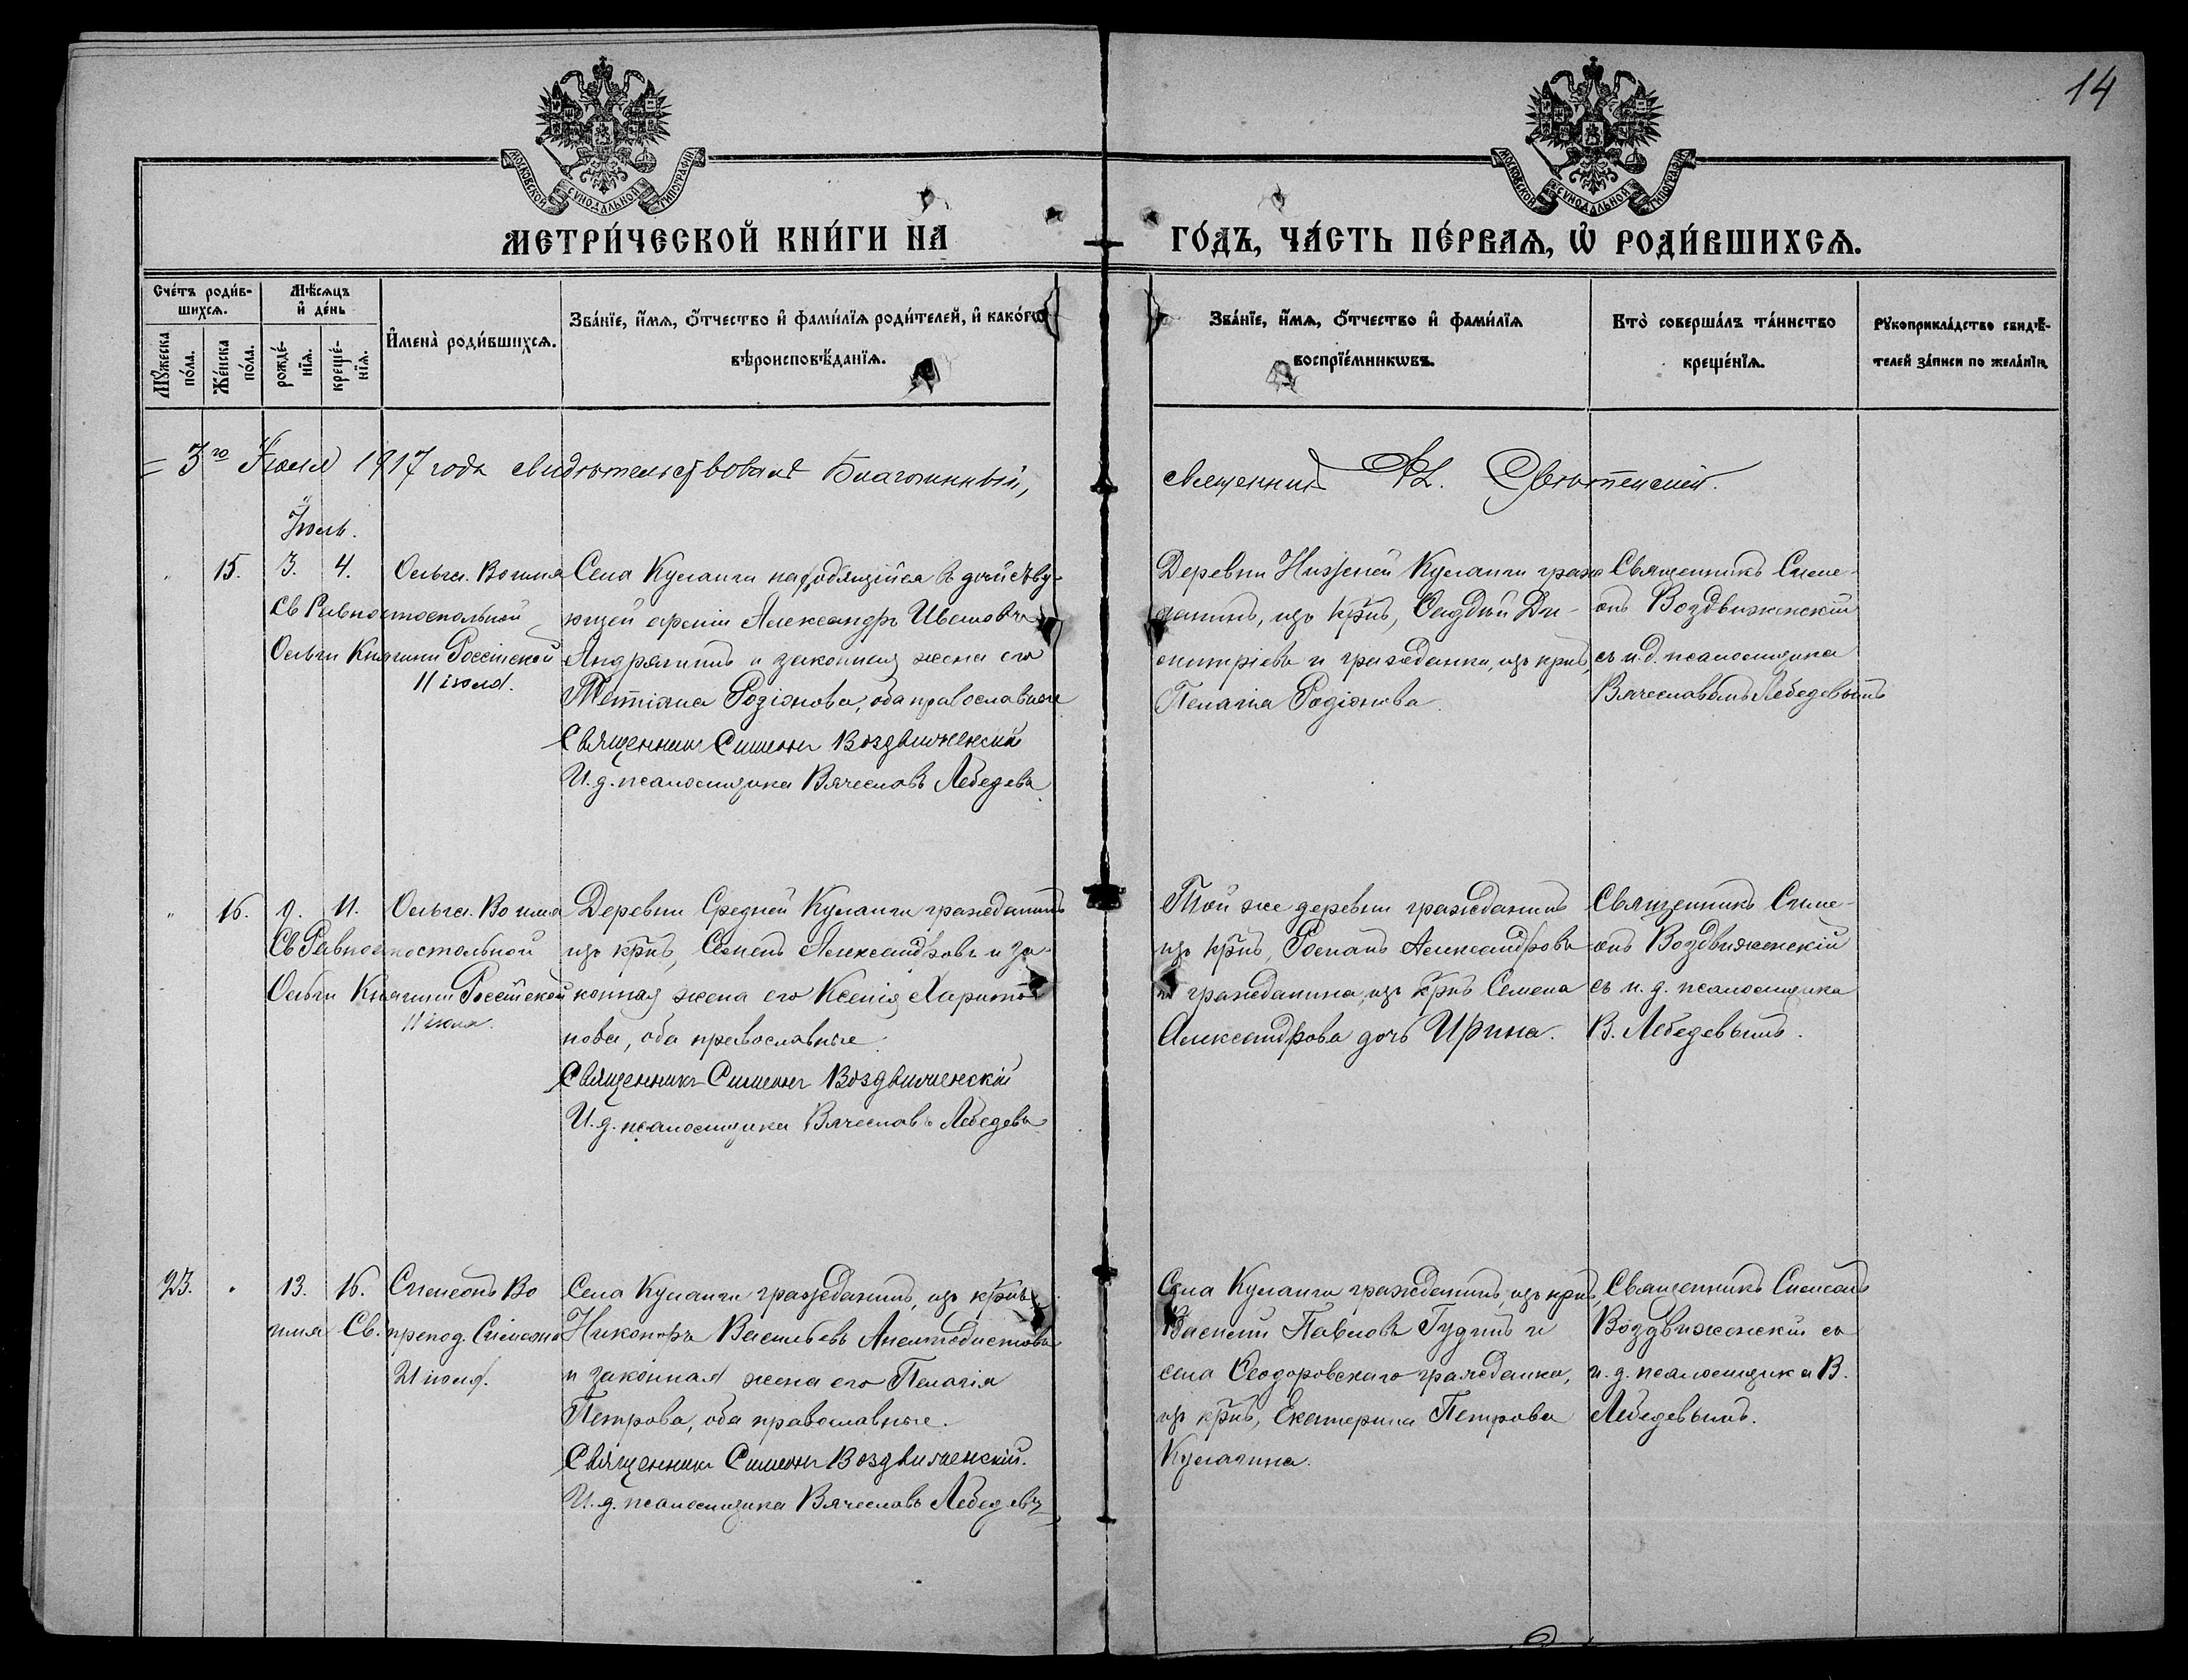 14
МОСКОВСКОЙ СѴНОДАЛЬНОЙ ТИПОГРАФІИ
МОСКОВСКОЙ СѴНОДАЛЬНОЙ ТИПОГРАФІИ
МЕТРИ́ЧЕСКОЙ КНИ́ГИ НА ГО́ДЪ, ЧА́СТЬ ПЕ́РВАѦ, Ѡ҆ РОДИ́ВШИХСѦ.
Сче́тъ роди́в-
шихсѧ.
Мѣ́сѧцъ
и҆ де́нь
Мꙋ́жеска
по́ла.
Же́нска
по́ла.
рожде́-
нїѧ.
креще́-
нїѧ.
И҆мена̀ роди́вшихсѧ.
Зва́нїе, и҆́мѧ, ѻ҆́тчество и҆ фами́лїѧ роди́телей, и҆ како́гѡ
вѣроисповѣ́данїѧ.
Зва́нїе, и҆́мѧ, ѻ҆́тчество и҆ фами́лїѧ
воспрїе́мникѡвъ.
Кто̀ соверша́лъ та́инство
креще́нїѧ.
Рꙋкоприкла́дство свидѣ́-
телей за́писи по жела́нїю.
= 3го Іюля 1917 года свидѣтельствовалъ Благочинный,
священникъ
Іюль.
" 15. 3. 4. Ольга. Во имя
Св Равноапостольной
Ольги Княгини Россійской
11 іюля.
Села Куланги находящійся въ дѣйству-
ющей арміи Александръ Ивановъ
Андрянинъ и законная жена его
Татіана Родіонова, оба православные
Священникъ Симеонъ Воздвиженскій
И. д. псаломщика Вячеславъ Лебедевъ
Деревни Нижней Куланги граж-
данинъ, изъ крнъ, Фаддѣй Ди-
митріевъ и гражданка, изъ крнъ,
Пелагія Родіонова.
Священникъ Симе-
онъ Воздвиженскій
съ и. д. псаломщика
Вячеславомъ Лебедевымъ
" 16. 9. 11. Ольга. Во имя
Св Равноапостольной
Ольги Княгини Россійской
11 іюля.
Деревни Средней Куланги гражданинъ
изъ крнъ, Семенъ Александровъ и за-
конная жена его Ксенія Харито-
нова, оба православные
Священникъ Симеонъ Воздвиженскій
И. д. псаломщика Вячеславъ Лебедевъ
Той же деревни гражданинъ
изъ крнъ, Романъ Александровъ
и гражданина, изъ крнъ Семена
Александрова дочь Ирина.
Священникъ Симе-
онъ Воздвиженскій
съ и. д. псаломщика
В. Лебедевымъ.
23. " 13. 16. Симеонъ Во
имя Св. препод. Симеона
21 іюля.
Села Куланги гражданинъ, изъ крнъ
Никоноръ Васильевъ Анемподистовъ
и законная жена его Пелагія
Петрова, оба православные.
Священникъ Симеонъ Воздвиженскій.
И. д. псаломщика Вячеславъ Лебедевъ
Села Куланги гражданинъ, изъ крнъ,
Василій Павловъ Гудинъ и
села Ѳеодоровскаго гражданка,
изъ крнъ, Екатерина Петрова
Кулагина.
Священникъ Симеонъ
Воздвиженскій съ
и. д. псаломщика В.
Лебедевымъ.